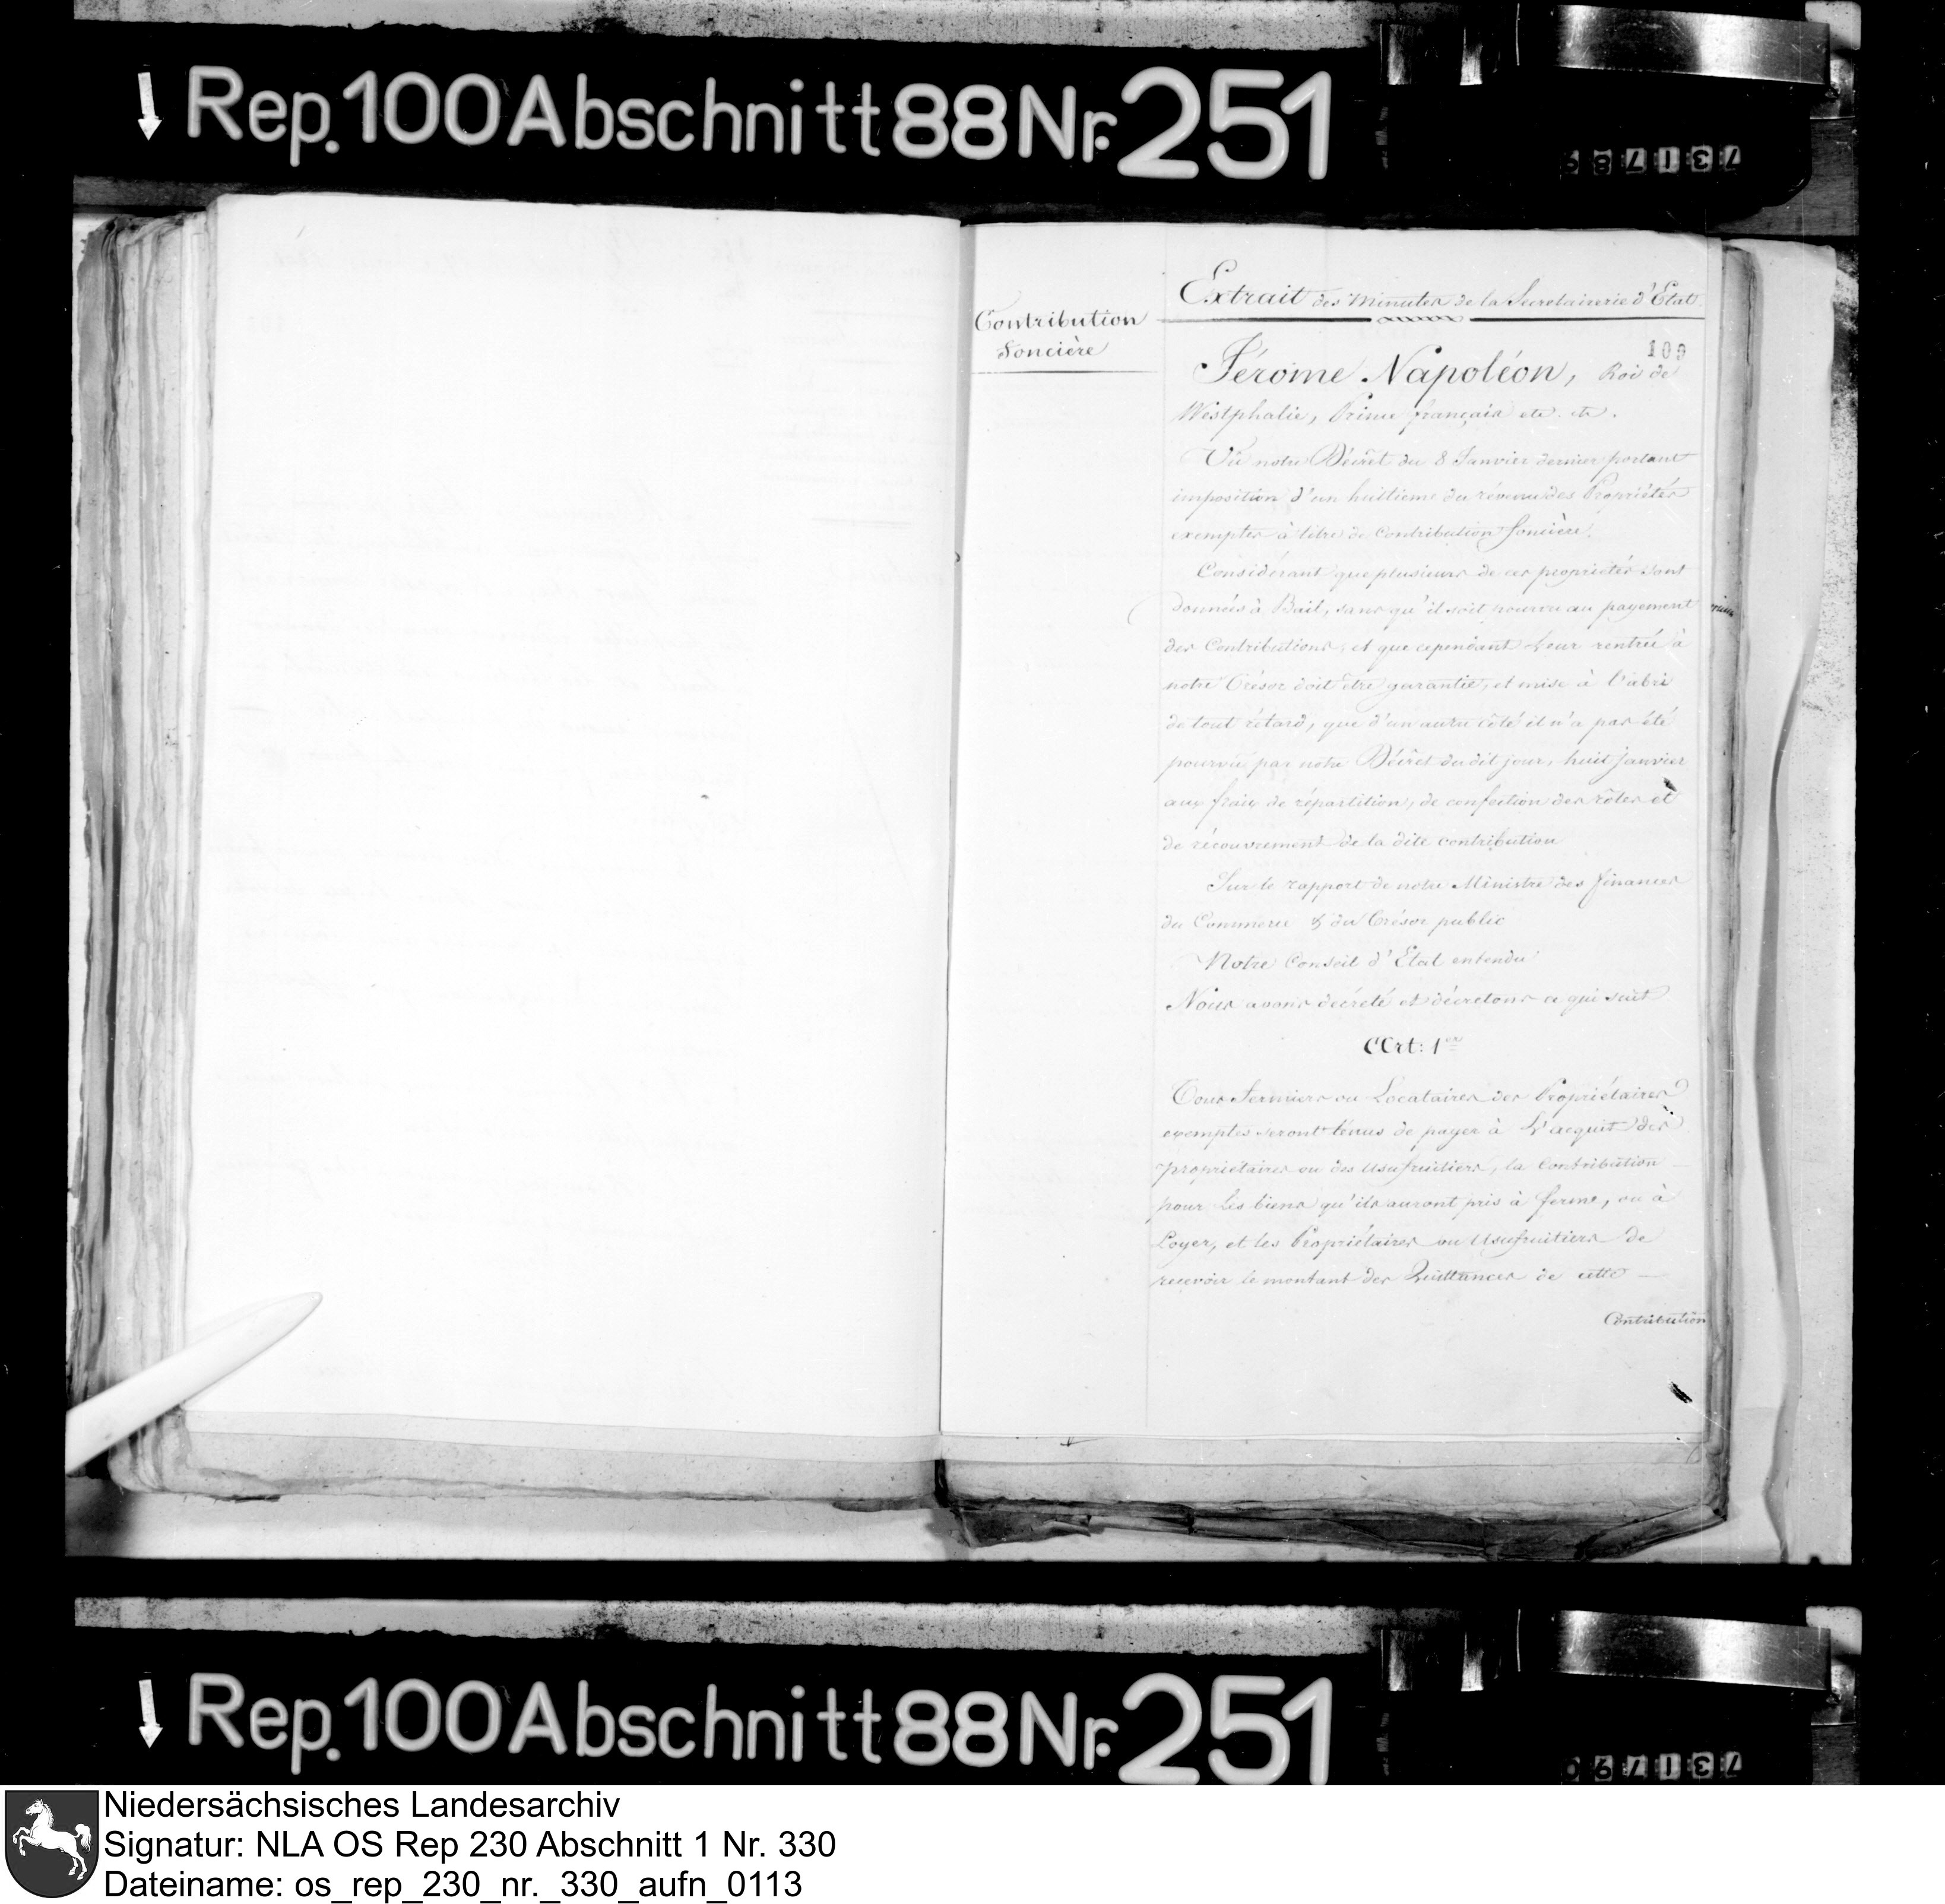 Rep. 100 Abschnitt 88 Nr. 251
731789
Extrait des Minutes de la Secretairerie d'Etat
Contribution
foncière
109
Jérome Napoléon, Roi de
Westphalie, Prince français etc. etc.
Vû notre Décrêt du 8 Janvier dernier portant
imposition d'un huitieme du révenu des Propriétés
exemptes à titre de Contribution foncière.
Considérant que plusieurs de ces propriétés sont
données à Bail, sans qu'il soit pourvu au payement
des Contributions, et que cependant leur rentrée à
notre Trésor doit être garantie, et mise à l'abri
de tout rétard, que d'un autre côté il n'a pas été
pourvû par notre Décrêt du dit jour, huit janvier
aux fraix de répartition, de confection des rôles et
de récouvrement de la dite contribution
Sur le rapport de notre Ministre des finances
du Commerce & du Trésor public
Notre Conseil d'Etat entendu
Nous avons décrété et décretons ce qui suit
Art: 1er
Tous Fermiers ou Locataires des Propriétaires
exemptes seront ténus de payer à l'acquit des
propriétaires ou des usufruitiers, la Contribution
pour les biens qu'ils auront pris à ferme, ou à
Loyer, et les Propriétaires ou Usufruitiers de
recevoir le montant des Quittances de cette
Contribution
Rep. 100 Abschnitt 88 Nr. 251
731790
Niedersächsisches Landesarchiv
Signatur: NLA OS Rep 230 Abschnitt 1 Nr. 330
Dateiname: os_rep_230_nr._330_aufn_0113